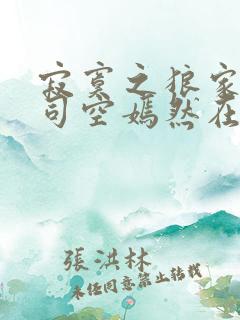 寂寞之狼家
司空嫣然在
張洪林
未经同意禁止转载